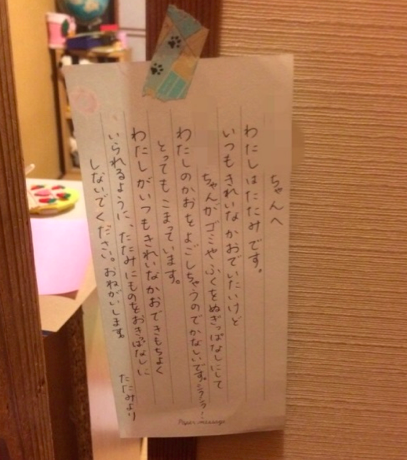 ちゃんへ
わたしはたたみです。
いつもきれいなかおでいたいけど
ちゃんがゴミやふくをぬぎっぱなしにして
わたしのかおをよごしちゃうのでかないです。うぅぅ…
とってもこまっています。
わたしがいつもきれいなかおできもちよく
いられるように、たたみにものをおきっぱなしに
しないでください。おねがいします。
たたみより